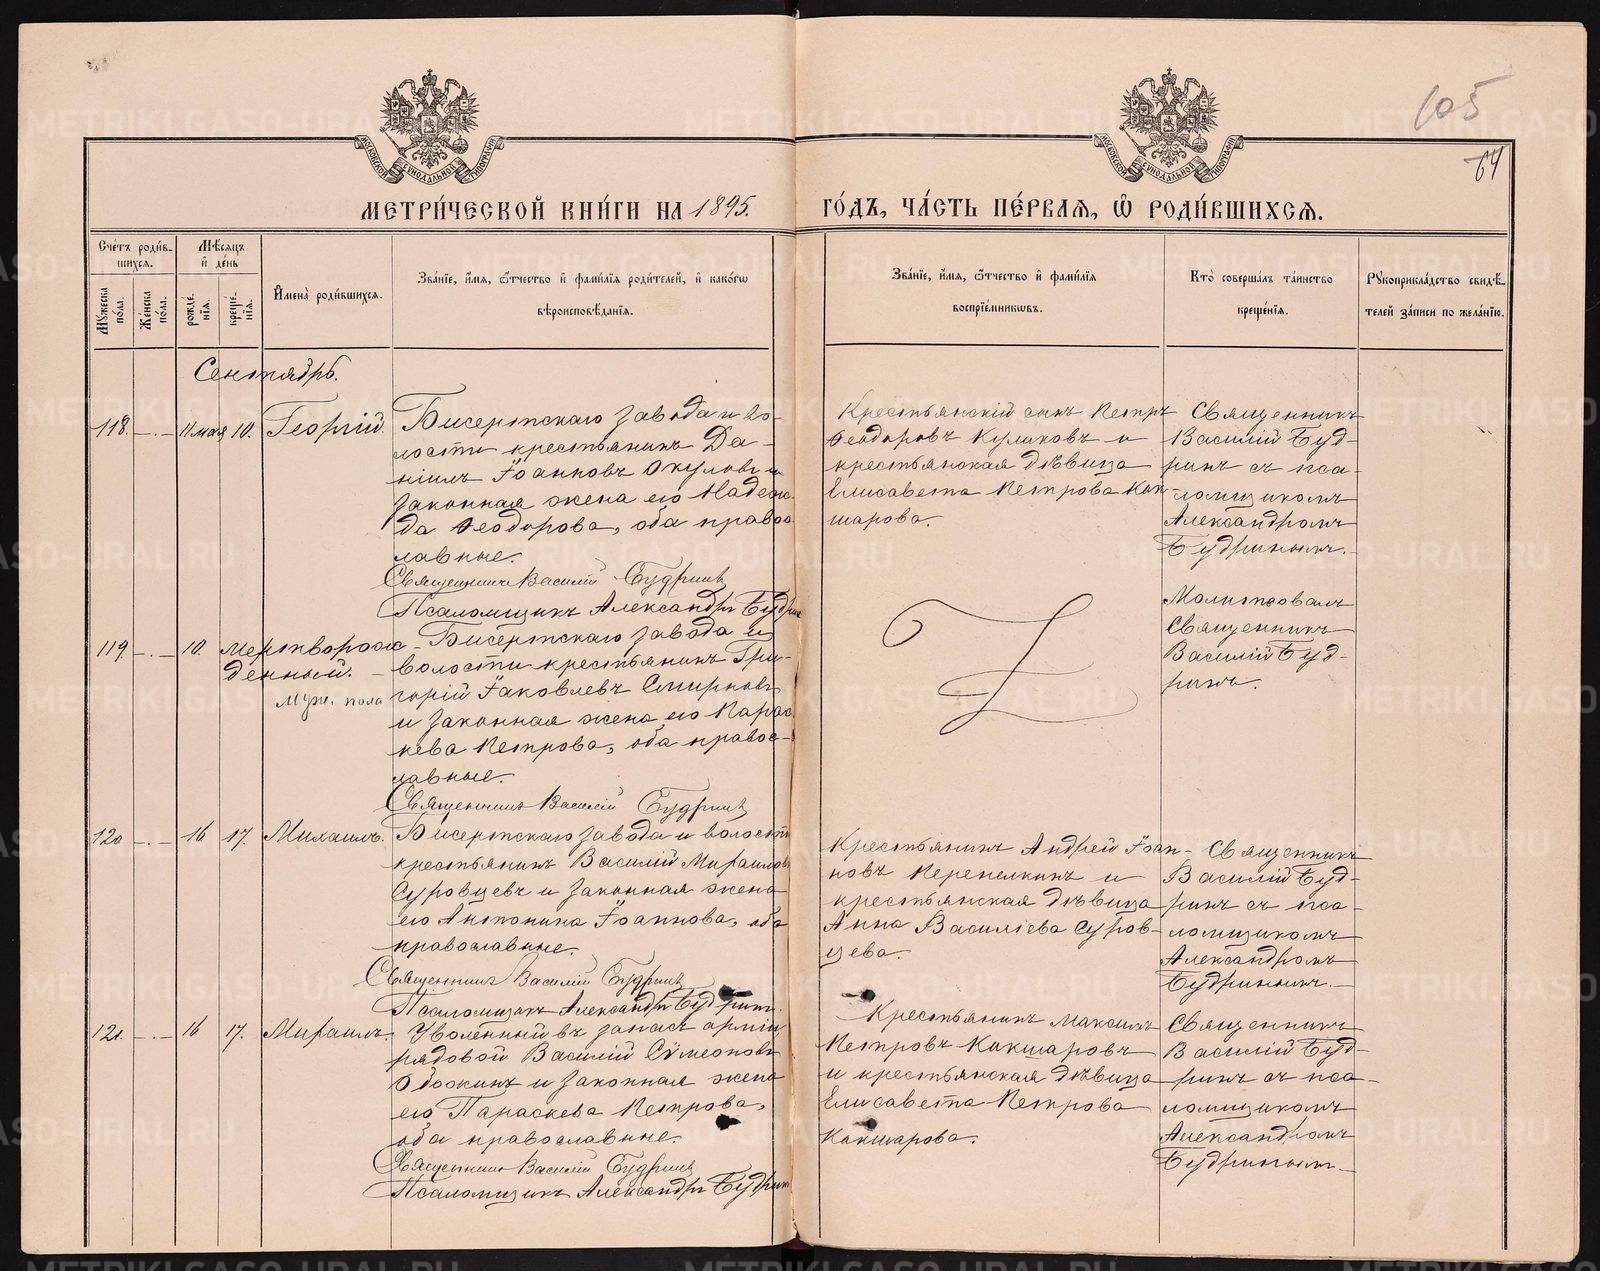 105
64
МОСКОВСКОЙ СѴНОДАЛЬНОЙ ТИПОГРАФІИ
МОСКОВСКОЙ СѴНОДАЛЬНОЙ ТИПОГРАФІИ
МЕТРИ́ЧЕСКОЙ КНИ́ГИ НА 1895.
ГО́ДЪ, ЧА́СТЬ ПЕ́РВАЯ, Ѡ҆ РОДИ́ВШИХСЯ.
Сче́тъ роди́в-
шихся.
Мꙋжеска по́ла.
Же́нска по́ла.
Мѣ́сяцъ
и҆ де́нь
рожде́нїя.
креще́нїя.
И҆мена̀ роди́вшихся.
Зва́нїе, и҆́мя, ѻ҆́тчество и҆ фами́лїя роди́телей, и҆ како́гѡ
вѣроисповѣ́данїя.
Зва́нїе, и҆́мя, ѻ҆́тчество и҆ фами́лїя
воспрїе́мникѡвъ.
Кто̀ соверша́лъ та́инство
креще́нїя.
Рꙋкоприкла́дство свидѣ́-
телей за́писи по жела́нїю.
Сентябрь.
118. — . — 11 мая 10. Георгій.
Бисертскаго завода и во-
лости крестьянинъ Да-
ніилъ Іоанновъ Окуловъ и
законная жена его Надеж-
да Ѳеодорова, оба право-
лавные.
Священникъ Василій Будринъ
Псаломщикъ Александръ Будрин
Крестьянскій сынъ Петръ
Ѳеодоровъ Куликовъ и
крестьянская дѣвица
Елисавета Петрова Кок-
шарова.
Священникъ
Василій Буд-
ринъ съ пса-
ломщикомъ
Александромъ
Будринымъ.
119 — . — 10. мертворож-
денный.
муж. пола
Бисертскаго завода и
волости крестьянинъ Гри-
горій Іаковлевъ Смирновъ
и законная жена его Парас
кева Петрова, оба правос-
лавные.
Священникъ Василій Будринъ
Молитвовалъ
Священникъ
Василій Буд-
ринъ.
120 — . — 16 17. Михаилъ.
Бисертскаго завода и волости
крестьянинъ Василій Михаиловъ
Суровцевъ и законная жена
его Антонина Іоаннова, оба
православные.
Священникъ Василій Будринъ
Псаломщикъ Александръ Будринъ
Крестьянинъ Андрей Іоан-
новъ Перепелкинъ и
крестьянская дѣвица
Анна Василіева Суров-
цева.
Священникъ
Василій Буд-
ринъ съ пса-
ломщикомъ
Александромъ
Будринымъ.
121. — . — 16 17. Михаилъ.
Уволенный въ запасъ арміи
рядовой Василій Сѵмеоновъ
и законная жена
его Параскева Петрова,
оба православные.
Священникъ Василій Будринъ
Псаломщикъ Александръ Будрин
Крестьянинъ Максимъ
Петровъ Кокшаровъ
и крестьянская дѣвица
Елисавета Петрова
Кокшарова.
Священникъ
Василій Буд-
ринъ съ пса-
ломщикомъ
Александромъ
Будринымъ
METRIKI.GASO-URAL.RU